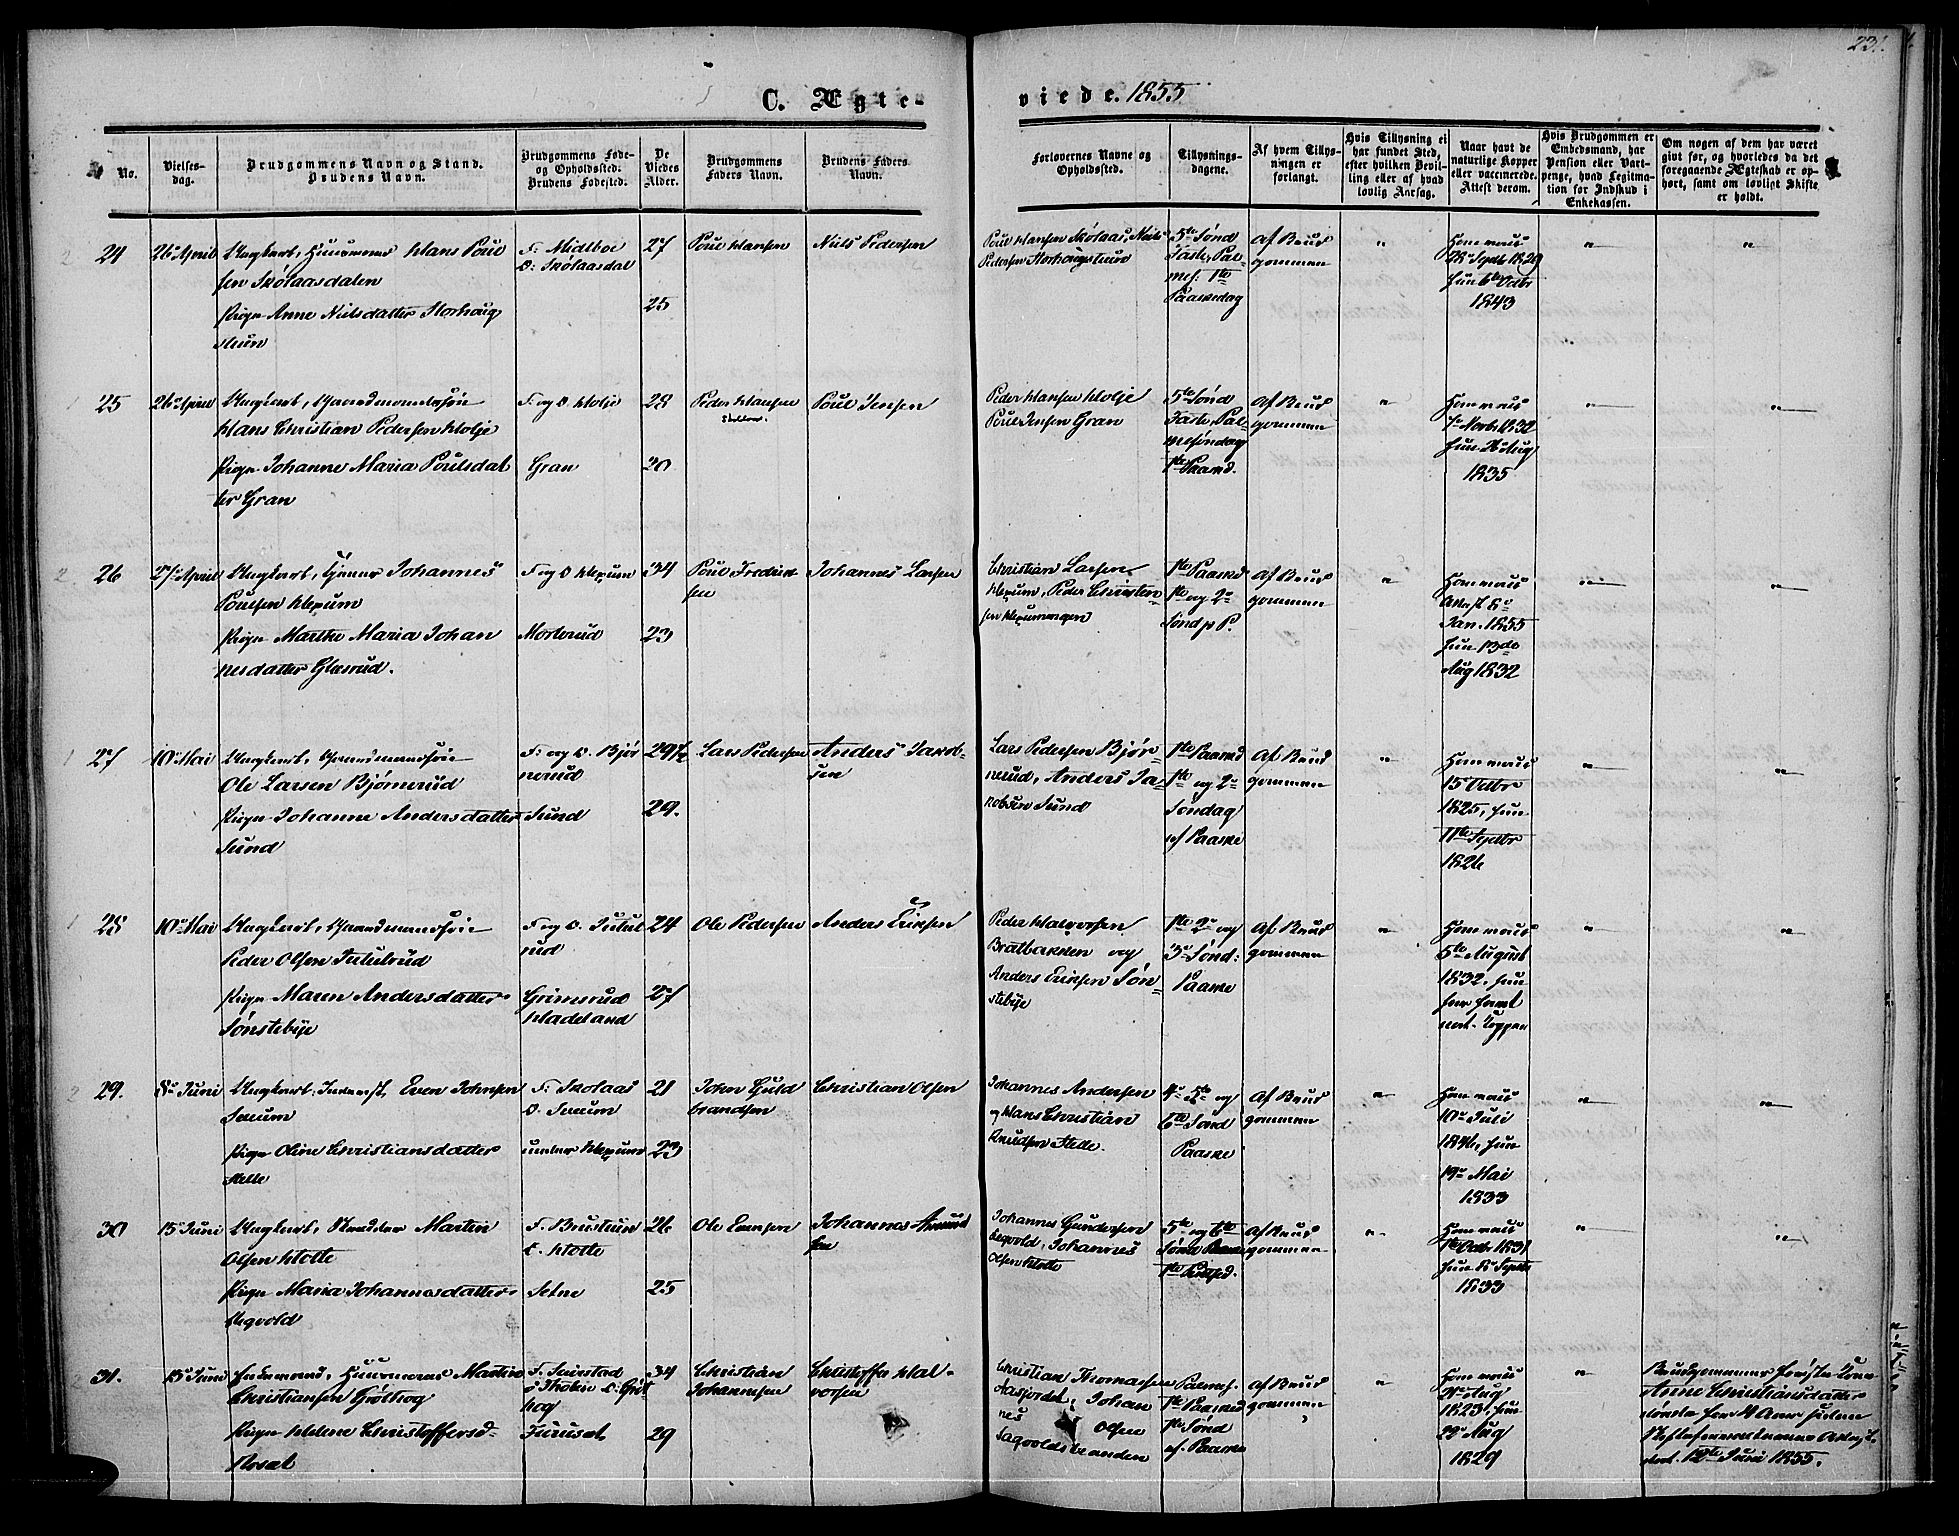 231.
C. Ægte-
viede. 1855
No.
Vielses-
dag.
Brudgommens Navn og Stand.
Brudens Navn.
Brudgommens Føde-
og Opholdssted.
Brudens Fødested.
De
Viedes
Alder.
Brudgommens
Faders Navn.
Brudens Faders
Navn.
Forlovernes Navne og
Opholdssted.
Tillysnings-
dagene.
Af hvem Tillys-
ningen er
forlangt.
Hvis Tillysning ei
har fundet Sted,
efter hvilken Bevil-
ling eller af hvad
lovlig Aarsag.
Naar havt de
naturlige Kopper
eller vaccinerede.
Attest derom.
Hvis Brudgommen er
Embedsmand, har
Pension eller Vart-
penge, hvad Legitima-
tion for Indskud i
Enkekassen.
Om nogen af dem har været
givt før, og hvorledes da det
foregaaende Ægteskab er op-
hørt, samt om lovligt Skifte
er holdt.
24
26 April
Ungkarl, Huusmand Hans Poul
sen Skølaasdalen
Pige Anne Nielsdatter Storhoug
steun
F: Midthoe
O: Skølaasdal
27
25
Poul Hansen
Niels Pedersen
Poul Hansen Skølaas, Niels
Pedersen
5te Sønd
Faste, Pal
mes. 1te
Paaskedag
Af Brud
gommen
28 Septb 1829
Hun 6te Octbr
1843
25
26 April
Ungkarl, Gaardmandssøn
Hans Christian Pedersen Holje
Pige Johanne Maria Poulsdat
ter Gran
F. og O. Holje
Gran
28
20
Peder Hansen
Poul Jensen
Peder Hansen Holje
Poul Jensen Gran
5te Sønd
Faste, Pal
mesøndag
1te Paaskd.
Af Brud
gommen
7 Novb 1832
Hun 26 Aug
1835
26
27 April
Ungkarl, Johannes
Poulsen Hexum
Pige Marthe Maria Johan
nesdatter Glæsrud.
F og O Hexum
Morterud
34
23
Poul Fredrik
sen
Johannes Larsen
Christian Larsen
Hexum, Peder Christen-
sen Hexumengen
1te Paaskd
1te og 2
Sønd p P.
Af Brud
gommen
Attest 8
Jan. 1855
Hun 13de
Aug 1832
27
10 Mai
Ungkarl, Gaardmandssøn
Ole Larsen Bjørnerud
Pige Johanne Andersdatter
Sund
F. og O. Bjør
nerud
Sund
29 1/2
29.
Lars Pedersen
Anders Jakob-
sen
Lars Pedersen Bjør-
nerud, Anders Ja-
kobsen Sund
1te Paaskd
1te og 2
Søndag
ef Paaske
Af Brud
gommen
15 Octbr
1825, Hun
11te Septbr
1826
28
10 Mai
Ungkarl, Gaardmandssøn
Peder Olsen Jutulrud
Pige Maren Andersdatter
Sønstebye
F og O. Jutul
rud
Grimsrud
Hadeland
24
27
Ole Pedersen
Anders Eriksen
Peder Halvorsen
Bratbakken og
Anders Eriksen Søn-
stebye
1te 2 og
3 Sønd:
Paaske
Af Brud
gommen
5te August
1832, Hun
29.
8 Juni
Ungkarl, Inderst, Even Johnsen
Pige Oline Christiansdatter
Stelle
F: Skolaas
under Hexum
21
23
John Guld
brandsen
Christian Olsen
Johannes Andersen
og Hans Christian
Knudsen Stelle.
4 5te og
6te Sønd
Paaske
Af Brud
gommen
10 Juli
1846, Hun
19 Mai
1833
30
15 Juni
Ungkarl, Skrædder Martin
Olsen Hotte
Pige Maria Johannesdatter
Segvold
F. Brustuen
O. Hotte
Setne
26
25
Ole Evensen
Johannes Amund
sen
Johannes Gundersen
Segvold, Johannes
Olsen Hotte
5te og 6te
Af Brud
gommen
1te Octbr 1831
1833
31.
15 Juni
Enkemand, Huusmand Martin
Christiansen Gjøthog
Pige Helene Christoffersd-
Rosæt
Furusæt
34
29
Christian
Johannesen
Christoffer Hal-
vorsen
Christian Thomassen
Johan
nes Olsen
Sagvoldsbranden
Palmes.
1te Paaskd
1te Sønd
ef. Paaske
Af Brud
gommen
2 Aug
1823, Hun
22 Aug
1829
Brudgommens første Kone
Anne Christiansdatter
døde for 4 Aar siden
12te Juni 1855.